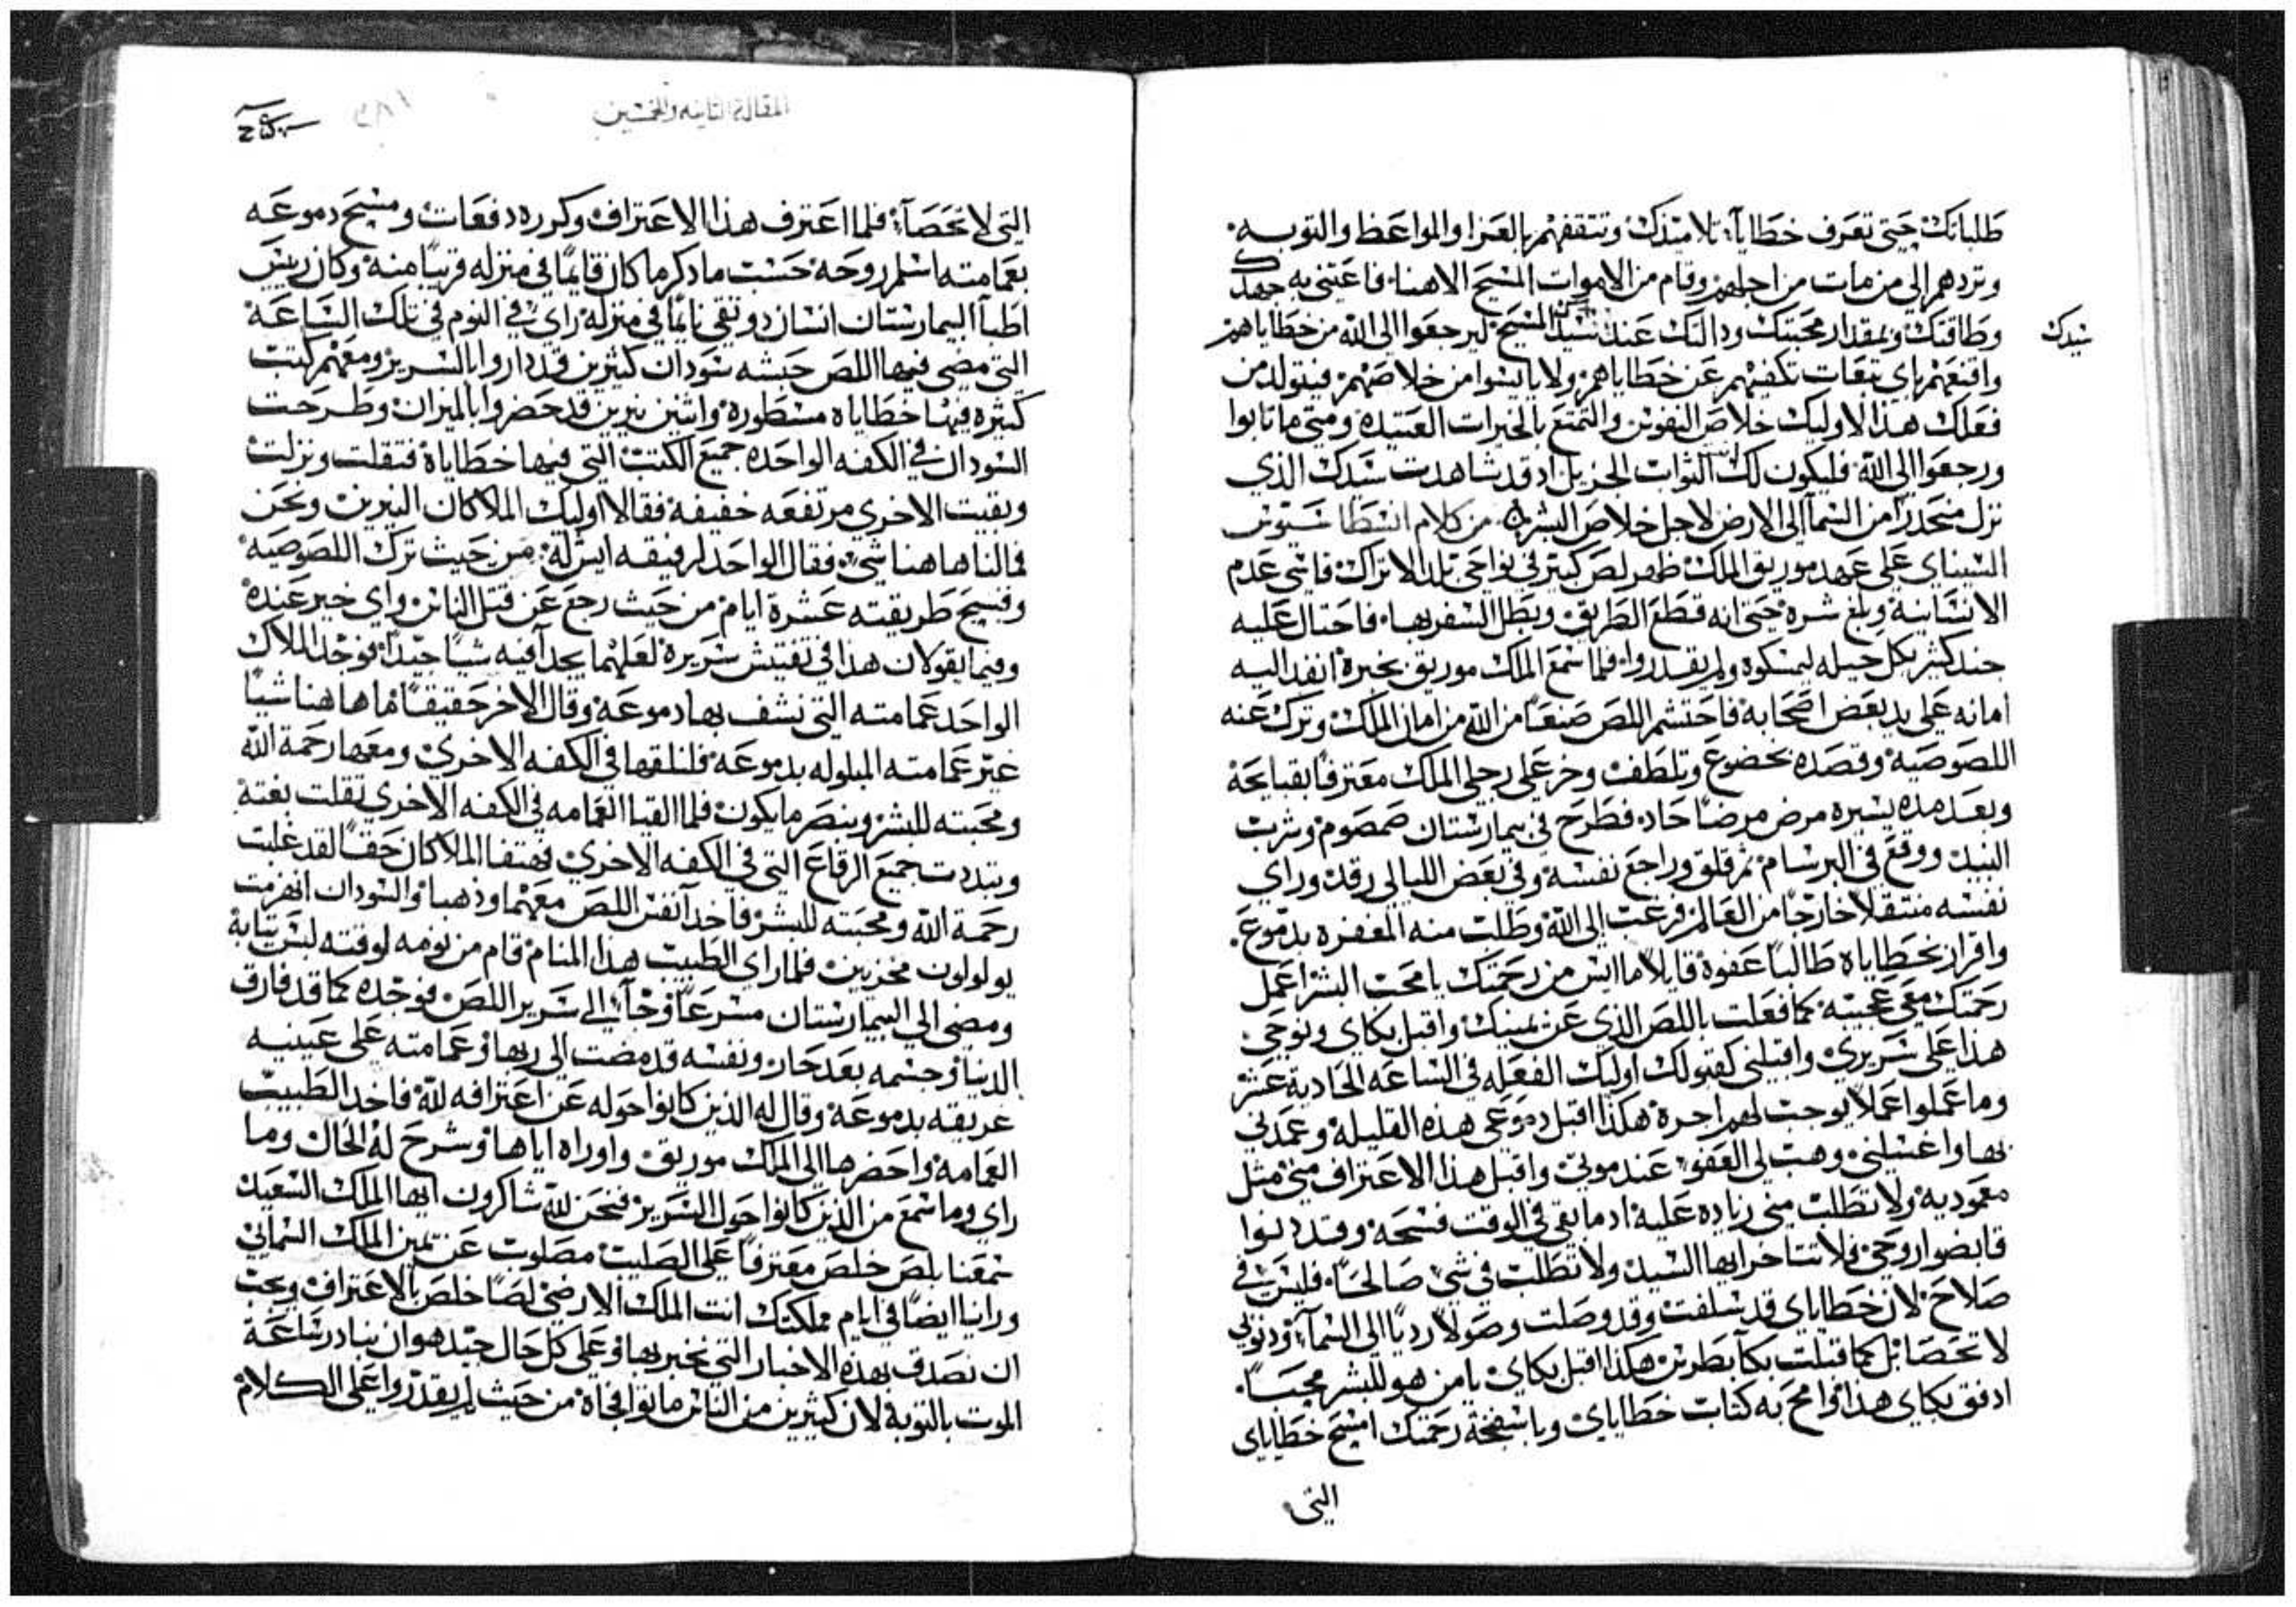 طلباتك حتى تعرف خطايا تلاميذك وتثقفهم بالعزا والمواعظ والتوبه.
وتردهم الي من مات من اجلهم وقام من الاموات المسيح الاهنا. فاعتني به جهدك
وطاقتك وبمقدار محبتك ودالتك عند سيدك المسيح ليرجعوا الي الله من خطاياهم
سيدك
واقنعهم باي تبعات تكفيهم عن خطاياهم ولا ياييسوا من خلاصهم فيتولد من
فعلك هذا لاوليك خلاص النفوس والتمتع بالخيرات العتيده ومتي ما تابوا
ورجعوا الي الله فليكون لك الثواب الجزيل اد قد شاهدت سيدك الذي
نزل منحدرا من السما الي الارض لاجل خلاص البشر من كلام انسطاسيوس
السيناي علي عهد موريق الملك ظهر لص كبير في نواحي بلد الاتراك فاشي عدم
الانسانية وبلغ شره حتي انه قطع الطريق وبطل السفر بها. فاحتال عليه
جند كثير بكل حيله ليمسكوه ولم يقدروا. فلما سمع الملك موريق بخبره انفد اليه
امانه علي يد بعض اصحابه فاحتشم اللص صنعا من الله من امان الملك وترك عنه
اللصوصيه وقصده بخضوع وتلطف وخر علي رجلي الملك معترفا بقبايحه
وبعد مده يسيره مرض مرضا حاد فطرح في بيمارستان صمصوم وشرب
النبيد ووقع في البرسام ثم قلق وراجع نفسه وفي بعض الليالي رقد وراي
نفسه منتقلا خارجا من العالم فرغب الي الله وطلب منه المغفره بدموع.
واقرار بخطاياه طالبا عفوه قايلا ما اييس من رحمتك يا محب البشر اعمل
رحمتك معي عجيبه كما فعلت باللص الذي عن يمينك واقبل بكاي ونوحي
هذا علي سريري واقبلني كقبولك اوليك الفعله في الساعه الحادية عشر
وما عملوا عملا يوجب لهم اجره هكذا اقبل دموعي هذه القليله وعمدني
بها واغسلني وهب لي العفو عند موتي واقبل هذا الاعتراف مني مثل
معموديه ولا تطلب مني زياده عليه اد ما بقي في الوقت فسحه وقد دنوا
قابضوا روحي فلا تتاخر ايها السيد ولا تطلب في شي صالحا. فليس في
صلاح لان خطاياي قد سلفت وقد وصلت وصولا رديا الي السما. ودنوبي
لا تحصا بل كما قبلت بكا بطرس هكذا اقبل بكاي يا من هو للبشر محبا.
ادفق بكاي هذا وامح به كتاب خطاياي وباسفنجة رحمتك امسح خطاياي
التي
المقالة الثانيه والخمسين
التي لا تحصا. فلما اعترف هذا الاعتراف وكرره دفعات ومسح دموعه
بعمامته اسلم روحه حسب ما دكر ما كان قايما في منزله قريبا منه وكان رييس
اطبا البيمارستان انسان دو تقي نايما في منزله راي في النوم في تلك الساعه
التي مضي فيها اللص حبشه سودان كثيرين قد داروا بالسرير ومعهم كتب
كثيره فيها خطاياه مسطوره واثنين نيرين قد حضروا بالميزان وطرحت
السودان في الكفه الواحده جميع الكتب التي فيها خطاياه فتقلت ونزلت
وبقيت الاخري مرتفعه خفيفه فقالا اوليك الملاكان النيرين ونحن
فمالنا هاهنا شي. فقال الواحد لرفيقه ايش له من حيث ترك اللصوصيه
وقبيح طريقته عشرة ايام من حيث رجع عن قتل الناس واي خير عنده
وفيما يقولان هذا في تفتيش سريره لعلهما يجدا فيه شيا جيدا. فوجد الملاك
الواحد عمامته التي نشف بها دموعه وقال الاخر حقيقا ما هاهنا شيا
غير عمامته المبلوله بدموعه فلنلقها في الكفه الاخري ومعها رحمة الله
ومحبته للبشر وننصر ما يكون فلما القيا العمامه في الكفه الاخري تقلت بغتة
وتبددت جميع الرقاع التي في الكفه الاخري فهتفا الملاكان حقا لقد غلبت
رحمة الله ومحبته للبشر فاخدا نفس اللص معهما وذهبا والسودان انهزمت
يولولون مخزيين فلما راي الطبيب هذا المنام قام من نومه لوقته لبس ثيابه
ومضي الي البيمارستان مسرعا وجا الي سرير اللص فوجده كما قد فارق
الدنيا وجسمه بعد حار ونفسه قد مضت الي ربها وعمامته علي عينيه
غريقه بدموعه وقال له الذين كانوا حوله عن اعترافه لله فاخد الطبيب
العمامه واحضرها الي الملك موريق واوراه اياها وشرح له الحال وما
راي وما سمع من الذين كانوا حول السرير فنحن لله شاكرون ايها الملك السعيد
سمعنا بلص خلص معترفا علي الصليب مصلوب عن يمين الملك السمائي
وراينا ايضا في ايام مملكتك انت الملك الارضي لصا خلص بالاعتراف ويجب
ان نصدق بهذه الاخبار التي نخبر بها وعلي كل حال جيد هو ان نبادر ساعة
الموت بالتوبه لان كثيرين من الناس ماتوا فجاه من حيث لم يقدروا علي الكلام